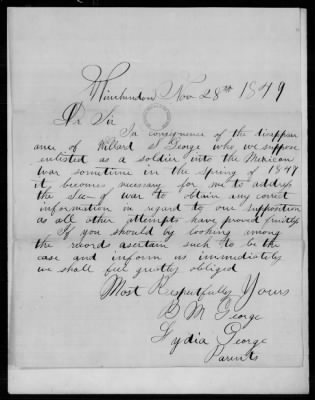 Winchendon Nov 28th 1849
Dr Sir
In consequence of the disappear
ance of Willard S George who we suppose
enlisted as a soldier into the Mexican
war sometime in the Spring of 1847
it becomes necessary for me to address
the Sec of war to obtain any correct
information in regard to our supposition
as all other attempts have proved fruitless
If you should by looking among
the records asertain such to be the
case and inform us immediately
we shall feel greatly obliged
Most Respectfully Yours
B M George
Lydia George
Parents